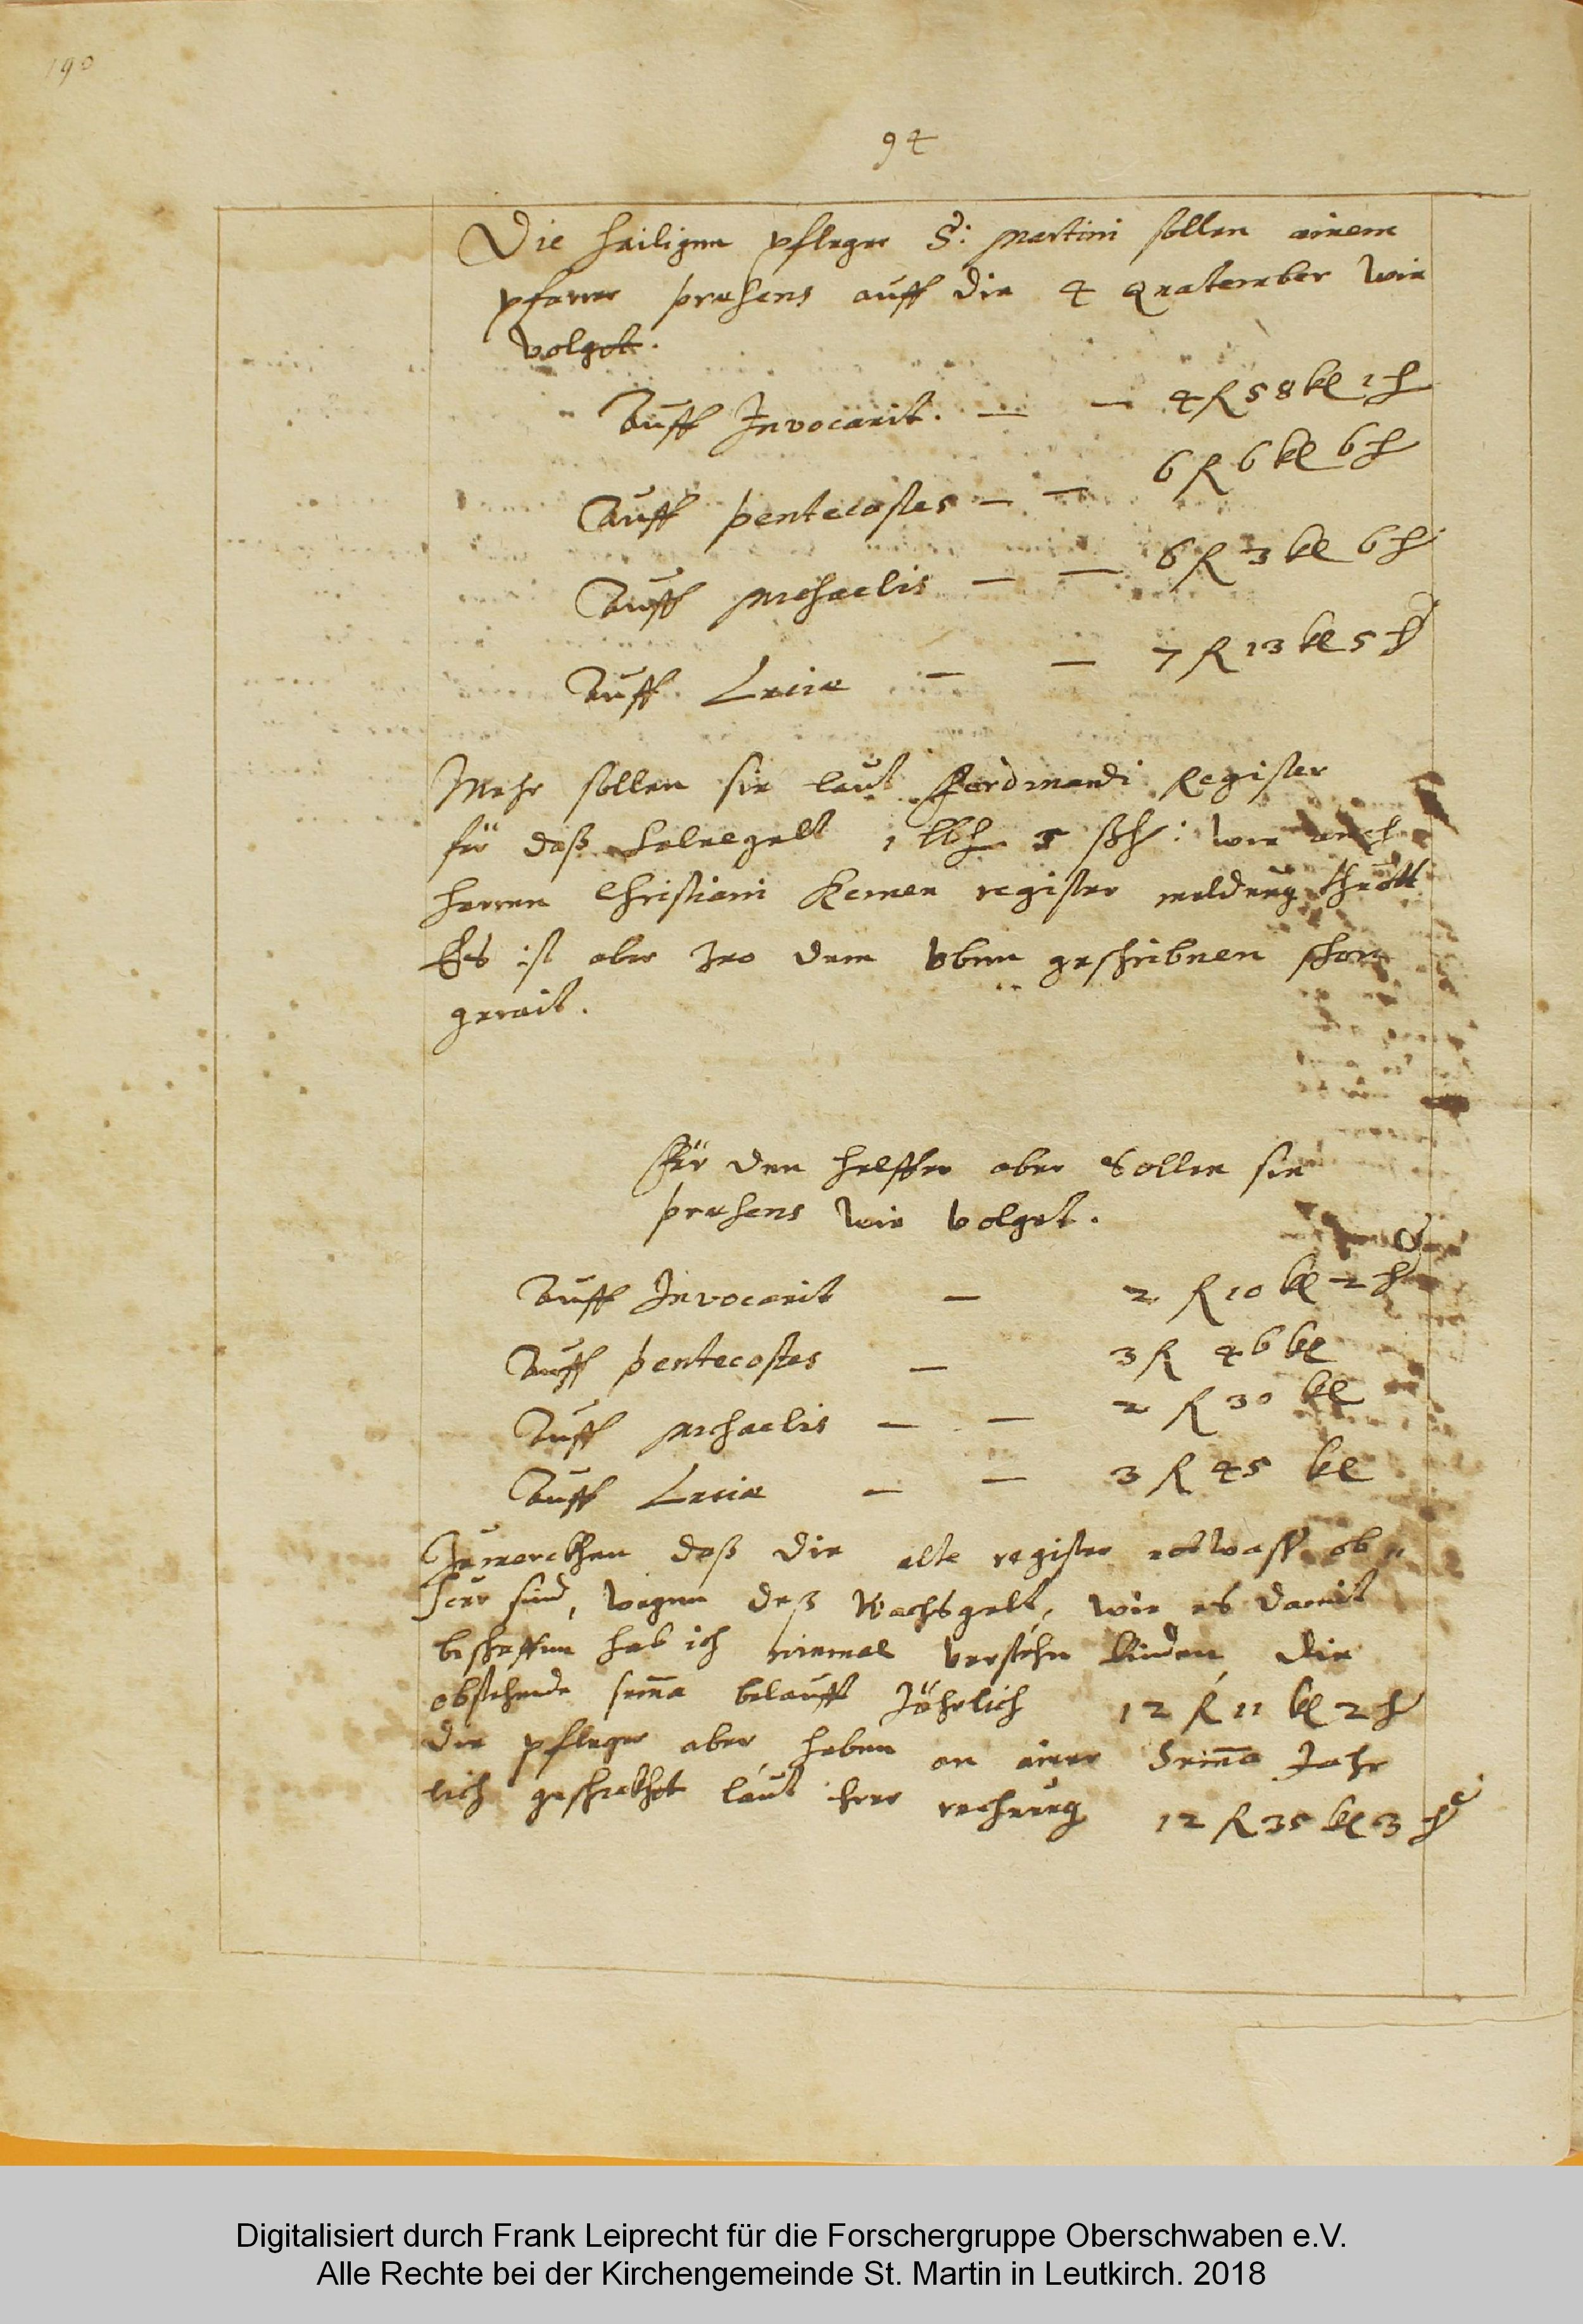 190
94
Die heiligen pfleger S: Martini sollen einem
pfarrer præsens auff die 4 Quatember wie
volget.
Auff Invocavit. — — 4 R 58 kl 1 h
Auff pentecostes — — 6 R 6 kl 6 h
Auff Michaelis — — 6 R 3 kl 6 h
Auff Luciæ — — 7 R 13 kl 5 h
Mehr sollen sie laut Ferdinandi Register
für daß 1 lb h 5 ß h: wie auch
herren Christiani Kemen register meldung thuott
Es ist aber den oben geschribnen schon
gerait.
Für den helffer aber Sollen sie
præsens wie volget.
Auff Invocavit — 2 R 10 kl 2 h
Auff pentecostes — 3 R 46 kl
Auff Michaelis — — 2 R 30 kl
Auff Luciæ — — 3 R 45 kl
Zumerckhen daß die alte register ettwaß ob„
scur sind, wegen deß Wachsgelt, wie es damit
beschaffen hab ich niemal verstehn künden, die
obstehende summa belaufft Jährlich 12 R 11 kl 2 h
die pfleger aber haben an einer Summa Jahr
lich laut ihrer rechnung 12 R 35 kl 3 h
Digitalisiert durch Frank Leiprecht für die Forschergruppe Oberschwaben e.V.
Alle Rechte bei der Kirchengemeinde St. Martin in Leutkirch. 2018